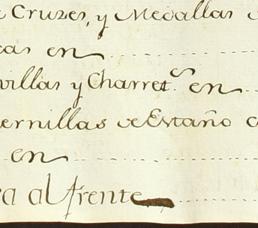 e Cruzes, y Medallas
cas en
villas y Charret.ˢ en
ernillas de Estaño
en
ra al frente